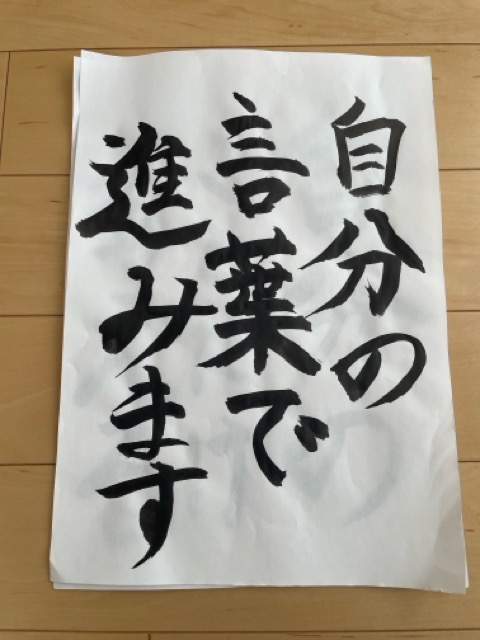 自分の
言葉で
進みます